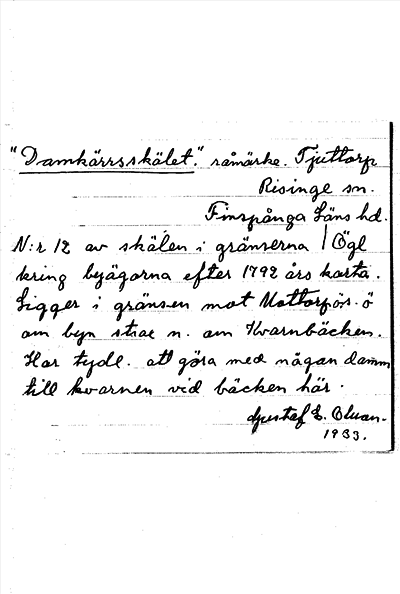 "Damkärrsskälet." råmärke. Tjuttorp
Risinge sn.
Finspånga Läns hd.
N:r 12 av skälen i gränserna / Ögl
kring byägorna efter 1792 års karta.
Ligger i gränsen mot Mottorp ö
om byn strax n. om Kvarnbäcken.
Har tydl. att göra med någon damm
till kvarnen vid bäcken här.
Gustaf E.
1933.